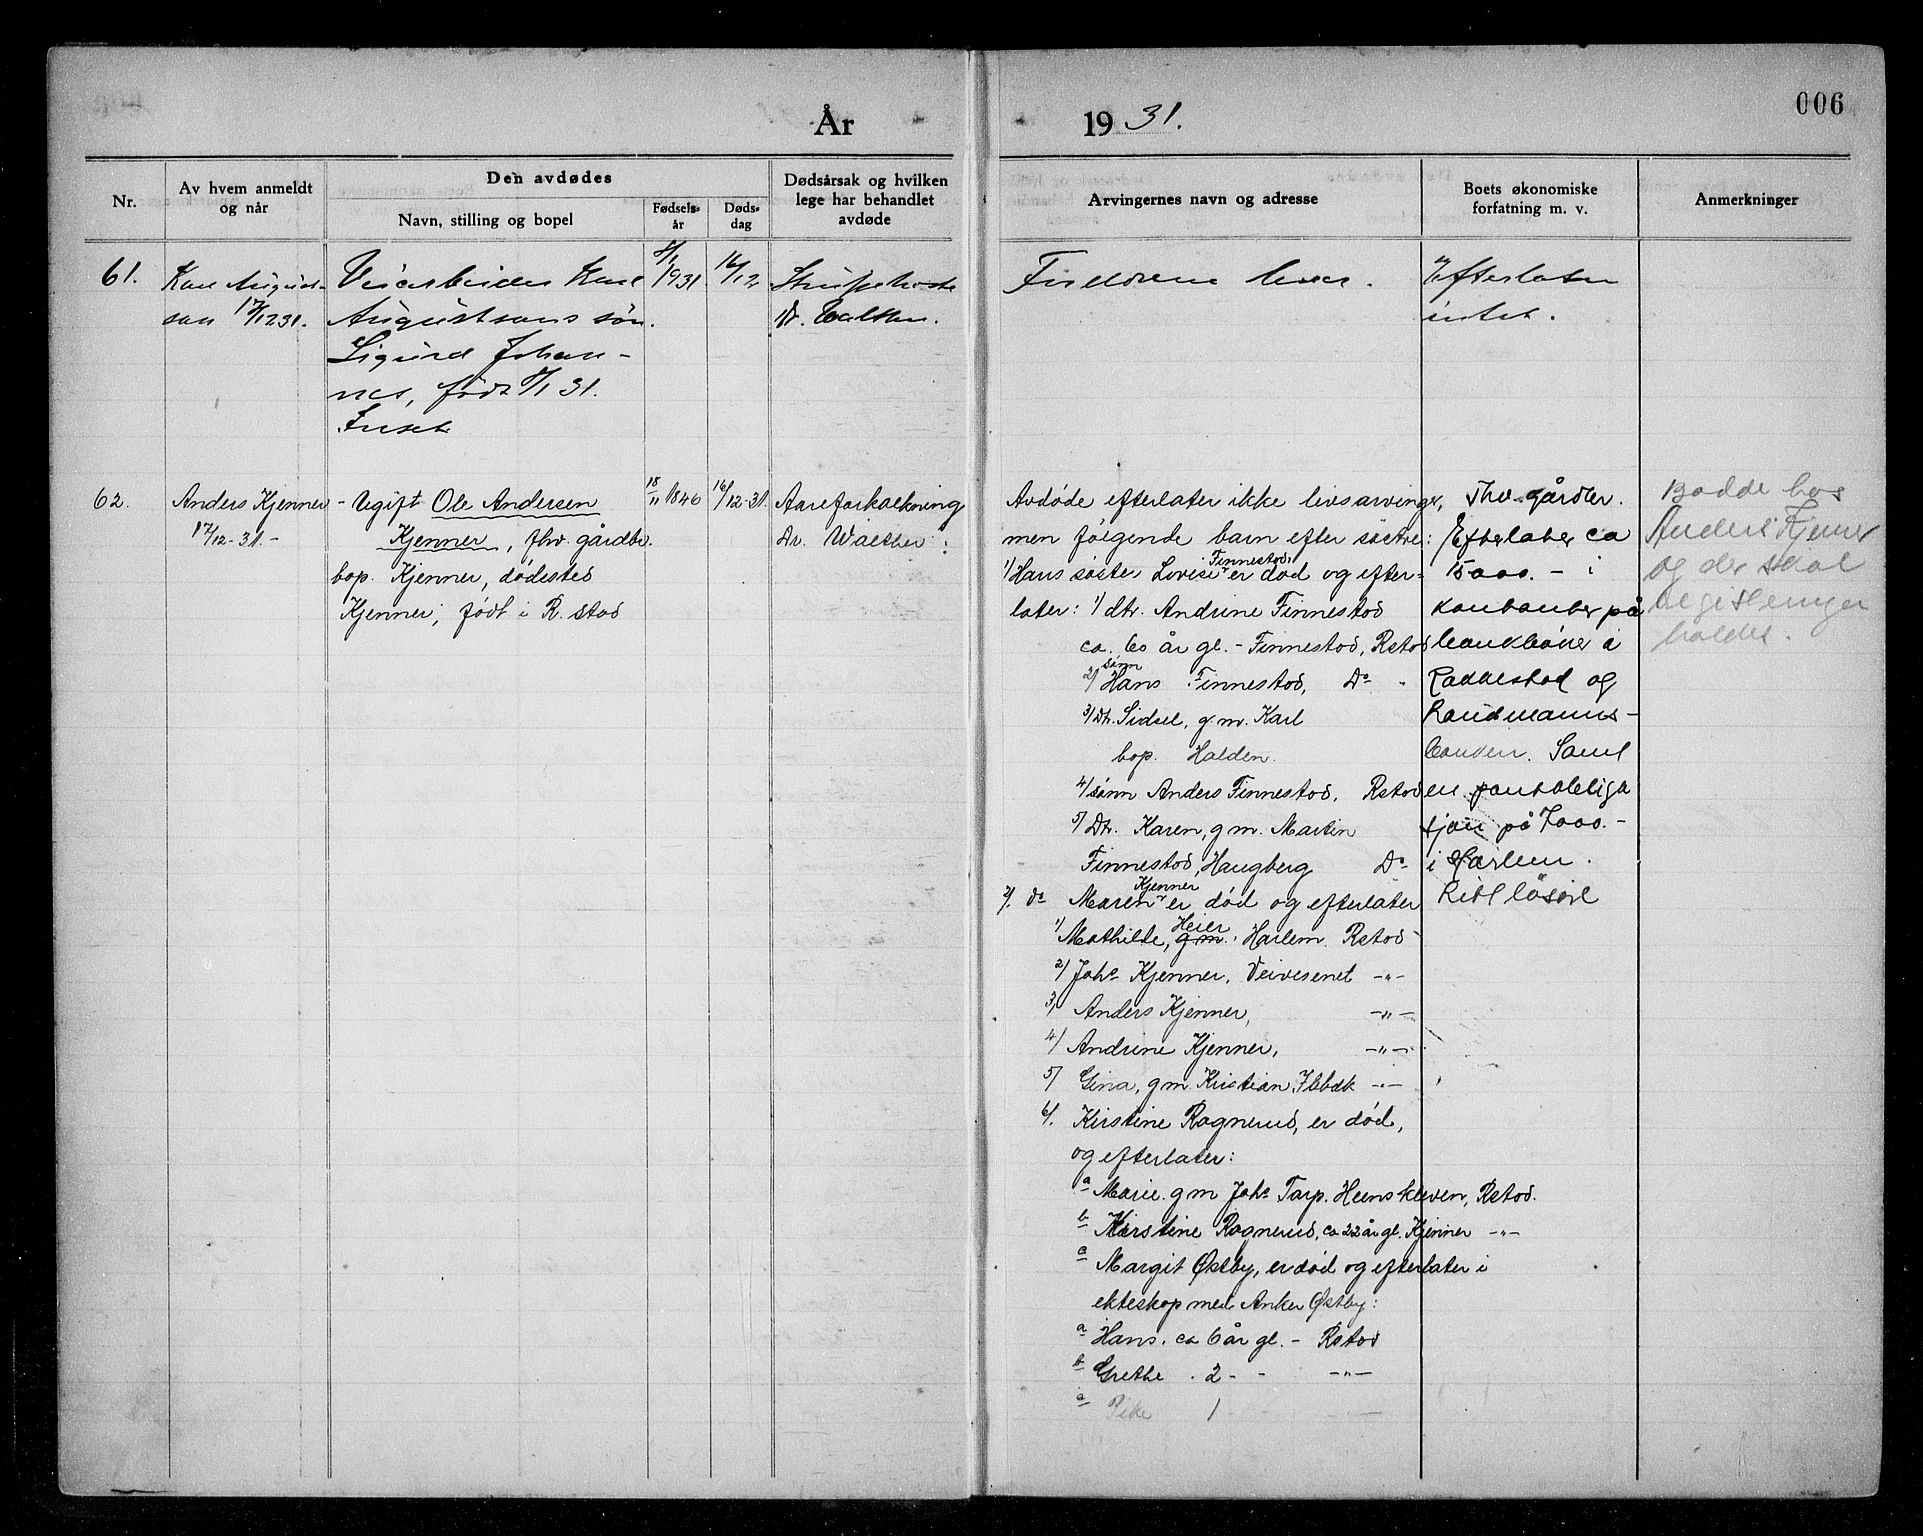 006
År 1931.
Nr.
Av hvem anmeldt
og når
Den avdødes
Navn, stilling og bopel
Fødsels-
år
Døds-
dag
Dødsårsak og hvilken
lege har behandlet
avdøde
Arvingernes navn og adresse
Boets økonomiske
forfatning m. v.
Anmerkninger
61.
Karl August-
san 17/12 31.
Veiarbeider Karl
Augustsans søn.
Sigurd Johan-
nes, født 8/1 31.
8/1
1931
16/12
Dr. Walther.
Foreldrene lever.
Efterlater
intet.
62.
Anders Kjenner
17/12-31.-
- Ugift Ole Andersen
Kjenner, fhv. gårdbr.
bop. Kjenner, dødested
Kjenner, født i R.stad
18
/11 1846
16/12-31.
Aareforkalkning
Dr. Walther.
Avdøde efterlater ikke livsarvinger,
men følgende barn efter søstre:
1/ Hans søster Lovise Finnestad er død og efter-
later: 1/ dtr. Andrine Finnestad
ca. 60 år gl. - Finnestad, Rstad
2/ sønn Hans Finnestad, Do
3/ Dtr. Sidsel, g.m. Karl
bop. Halden.
4/ sønn Anders Finnestad, Rstad
5/ Dtr. Karen, g.m. Martin
Finnestad, Haugberg Do
2/. do Maren Kjenner er død og efterlater
1/ Mathilde, g.m. Heier Harlem Rstad
2/ Johs Kjenner, Veivesenet -"-
3/ Anders Kjenner, -"-
4/ Andrine Kjenner, -"-
5/ Gina, gm. Kristian Ilebæk -"-
6/. Kirstine Ragnerud, er død,
og efterlater:
a Marie. gm Johs Tarp. Heenskleven, Rstad.
b Kirstine Ragnerud, ca 22 år gl. Kjenner -"-
c Margit Østby, er død og efterlater i
ekteskap med Anker Østby:
a Hans. ca 6 år gl. - Rstad
b Grethe . 2 - - -"-
c Pike 1 - - -
Fhv. gårdbr.
Efterlater ca
15000.- i
kontanter på
bankbøker i
Rakkestad og
Landmanns-
banken. Samt
en panteobliga
tjon på 7000.-
i Harlem.
Litt løsøre
Bodde hos
Anders Kjenner
og der skal
registeringen
holdes.